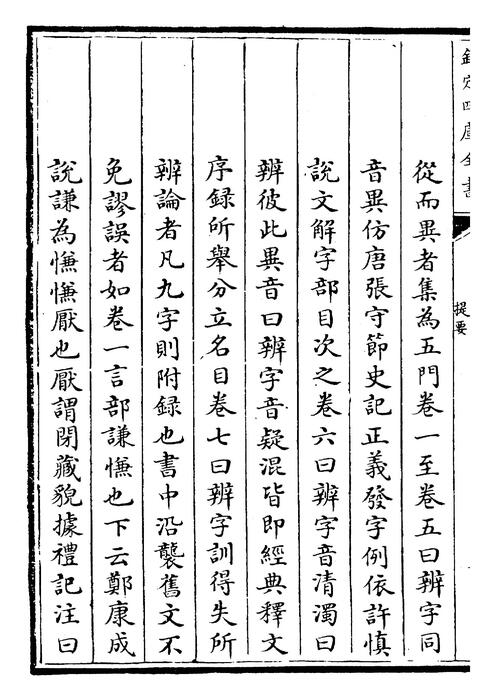 欽定四庫全書
提要
從而異者集為五門卷一至卷五曰辨字同
音異仿唐張守節史記正義發字例依許慎
説文解字部目次之卷六曰辨字音清濁曰
辨彼此異音曰辨字音疑混皆即經典釋文
序録所舉分立名目卷七曰辨字訓得失所
辨論者凡九字則附録也書中沿襲舊文不
免謬誤者如卷一言部謙慊也下云鄭康成
説謙為慊慊厭也厭謂閉藏貌據禮記注曰